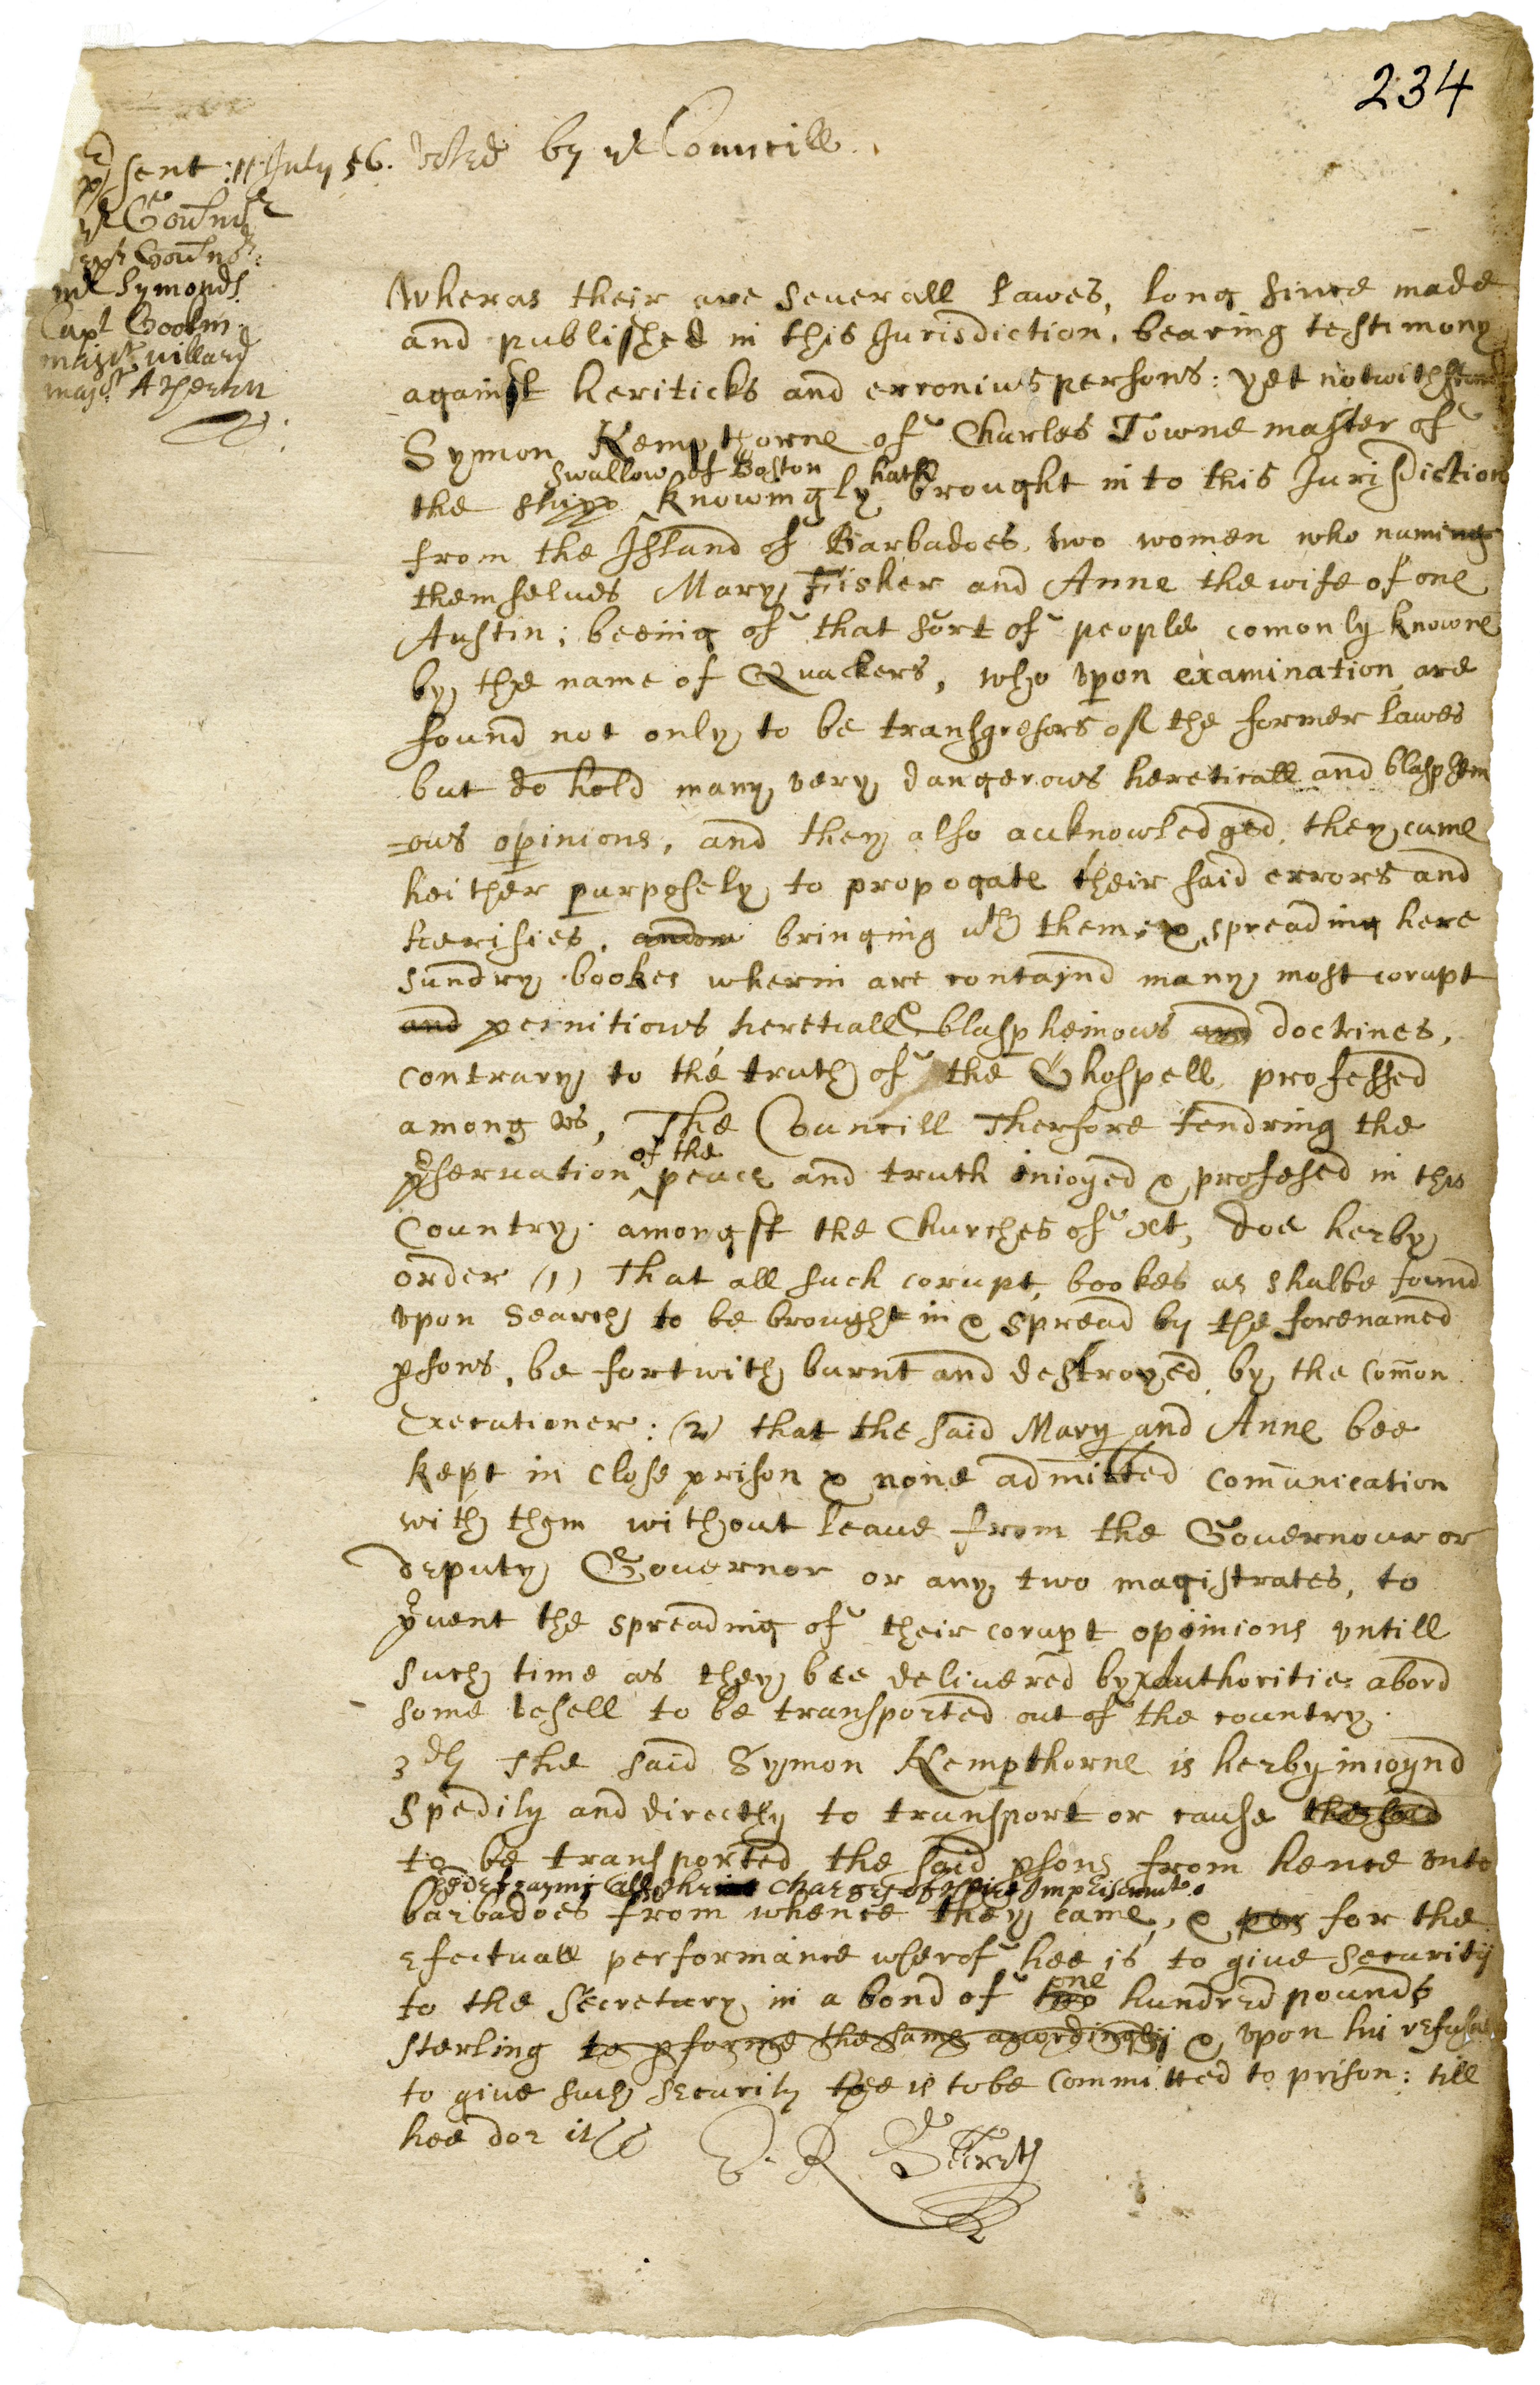 234
p̱sent : 11 July 56. Voted by yͤ Councill.
yͤ Gou̅noʳ
Gou̅noʳ.
mʳ Symonds
Capt Gookin
majoʳ willard
majoʳ Atherton
Wheras their are seuerall lawes, long since made
and published in this Jurisdiction, bearing testimony
against heriticks and erronius persons : yet notwithstand
Symon Kempthorne of Charles Towne master of
Swallow of Boston hath
the shipp ^ knowingly brought in to this Jurisdiction
from the Island of Barbadoes, two women who naming
themselues Mary Fisher and Anne the wife of one
Austin ; beeing of that sort of people comonly knowne
by the name of Quackers, who vpon examination are
found not only to be transgresors of the former lawes
but do hold many very dangerous hereticall and blasphem
-ous opinions, and they also acknowledged, they came
heither purposely to propogate their said errors and
herisies, bringing wth them & spreading here
sundry bookes wherin are contaynd many most corupt
and pernitious hereticall & blasphemous and doctrines,
contrary to the truth of the Ghospell professed
among vs, The Councill Therfore tendring the
of the
p̱seruation ^ peace and truth inioyed & professed in this
Country. amongst the Churches of xt, doe herby
order (1) That all such corupt, bookes as shalbe found
vpon search to be brought in & spread by the forenamed
p̱sons, be fortwith burnt and destroyed by the Com̅on
Executioner : (2) that the said Mary and Anne bee
kept in close prison & none admitted com̅unication
with them without leaue from the Gouernour or
deputy Gouernor or any two magistrates, to
p̱uent the spreading of their corupt opinions vntill
such time as they bee deliuered by Authoritie abord
some vesell to be transported out of the country.
3dly The said Symon Kempthorne is herby inioynd
spedily and directly to transport or cause the said
to be transported the said p̱sons from hence vnto
defraying all charges of their Imprisonmt
barbadoes from whence they came, & for the
efectuall performance wherof hee is to giue security
one
to the Secretary in a bond of two hundred pounds
sterling to p̱forme the same acordingly & vpon his refusal
to giue such security hee is to be Committed to prison : till
hee doe it
E. R. Secrety